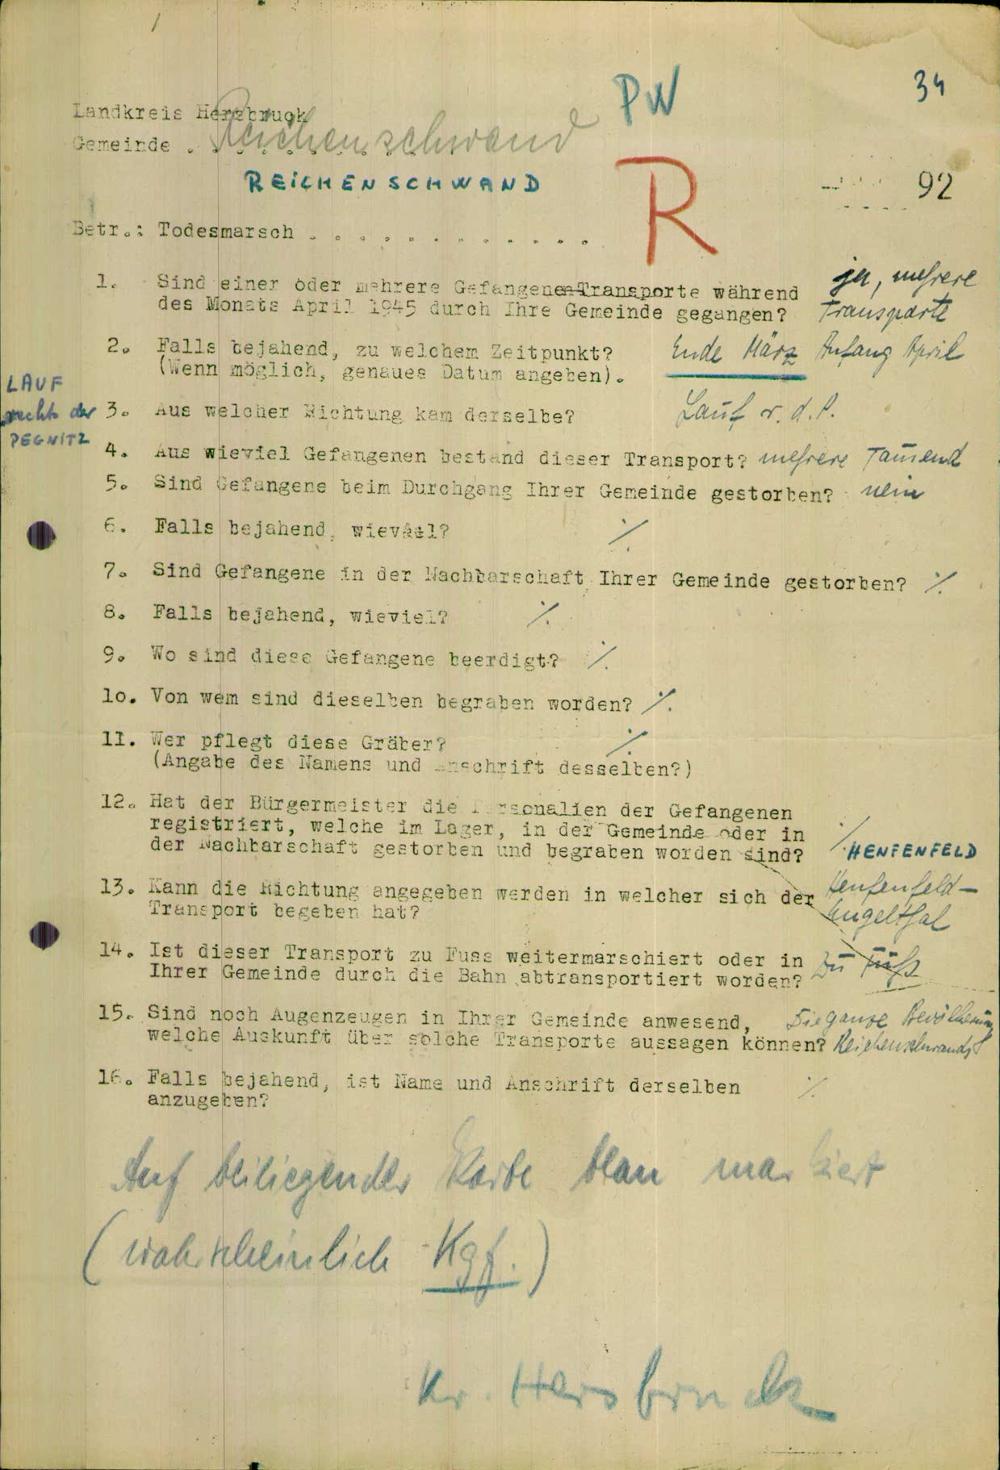 PW
34
Landkreis Hersbruck
Gemeinde . Reichenschwand
REICHENSCHWAND
R
92
Betr.: Todesmarsch . . . . . . . . . . . . .
1. Sind einer oder mehrere Gefangenen-Transporte während ja, mehrere
des Monats April 1945 durch Ihre Gemeinde gegangen? Transporte
2. Falls bejahend, zu welchem Zeitpunkt? Ende März Anfang April
(Wenn möglich, genaues Datum angeben).
LAUF
rechts der
PEGNITZ
3. Aus welcher Richtung kam derselbe? Lauf r. d. P.
4. Aus wieviel Gefangenen bestand dieser Transport? mehrere Tausend
5. Sind Gefangene beim Durchgang Ihrer Gemeinde gestorben? nein
6. Falls bejahend, wieviel? ./.
7. Sind Gefangene in der Nachbarschaft Ihrer Gemeinde gestorben? ./.
8. Falls bejahend, wieviel? ./.
9. Wo sind diese Gefangene beerdigt? ./.
10. Von wem sind dieselben begraben worden? ./.
11. Wer pflegt diese Gräber? ./.
(Angabe des Namens und Anschrift desselben?)
12. Hat der Bürgermeister die Personalien der Gefangenen
registriert, welche im Lager, in der Gemeinde oder in
der Nachbarschaft gestorben und begraben worden sind? ./.
HENFENFELD
13. Kann die Richtung angegeben werden in welcher sich der Henfenfeld-
Transport begeben hat? Engelthal
14. Ist dieser Transport zu Fuss weitermarschiert oder in zu Fuß
Ihrer Gemeinde durch die Bahn abtransportiert worden?
15. Sind noch Augenzeugen in Ihrer Gemeinde anwesend, Die ganze Bevölkerung
welche Auskunft über solche Transporte aussagen können? Reichenschwands
16. Falls bejahend, ist Name und Anschrift derselben ./.
anzugeben?
Auf beiliegender Karte blau markiert
(wahrscheinlich Kgf.)
Kr. Hersbruck